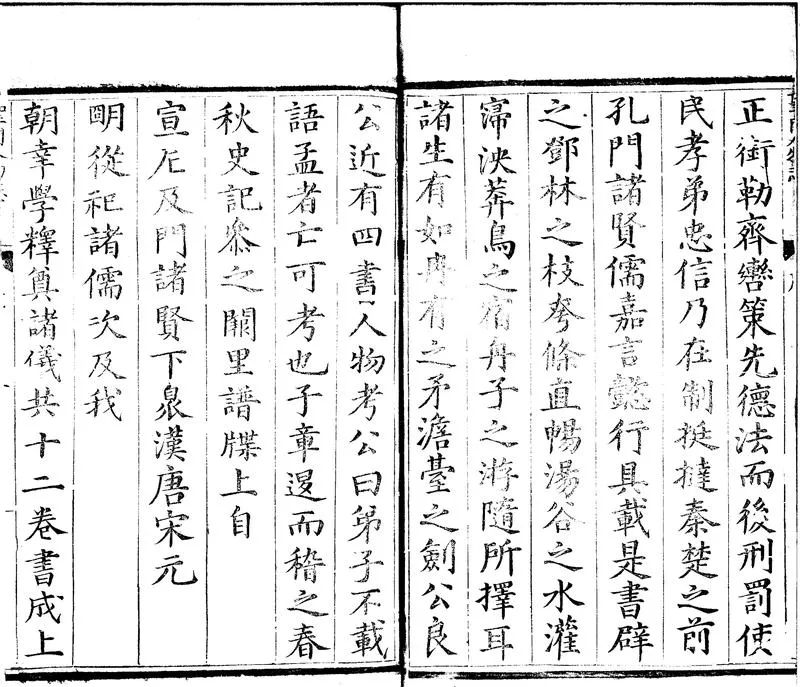 正衘勒齊轡策先德法而後刑罰使
民孝弟忠信乃在制挺撻秦楚之前
孔門諸賢儒嘉言懿行具載是書辟
之鄧林之枝夸條直暢湯谷之水灌
泱莽鳥之宿舟子之游隨所擇耳
諸生有如冉有之矛澹臺之劍公良
公近有四書人物考公曰弟子不載
語孟者亡可考也子章退而稽之春
秋史記叅之闕里譜牒上自
宣尼及門諸賢下泉漢唐宋元
明從祀諸儒次及我
朝幸學釋奠諸儀共十二卷書成上